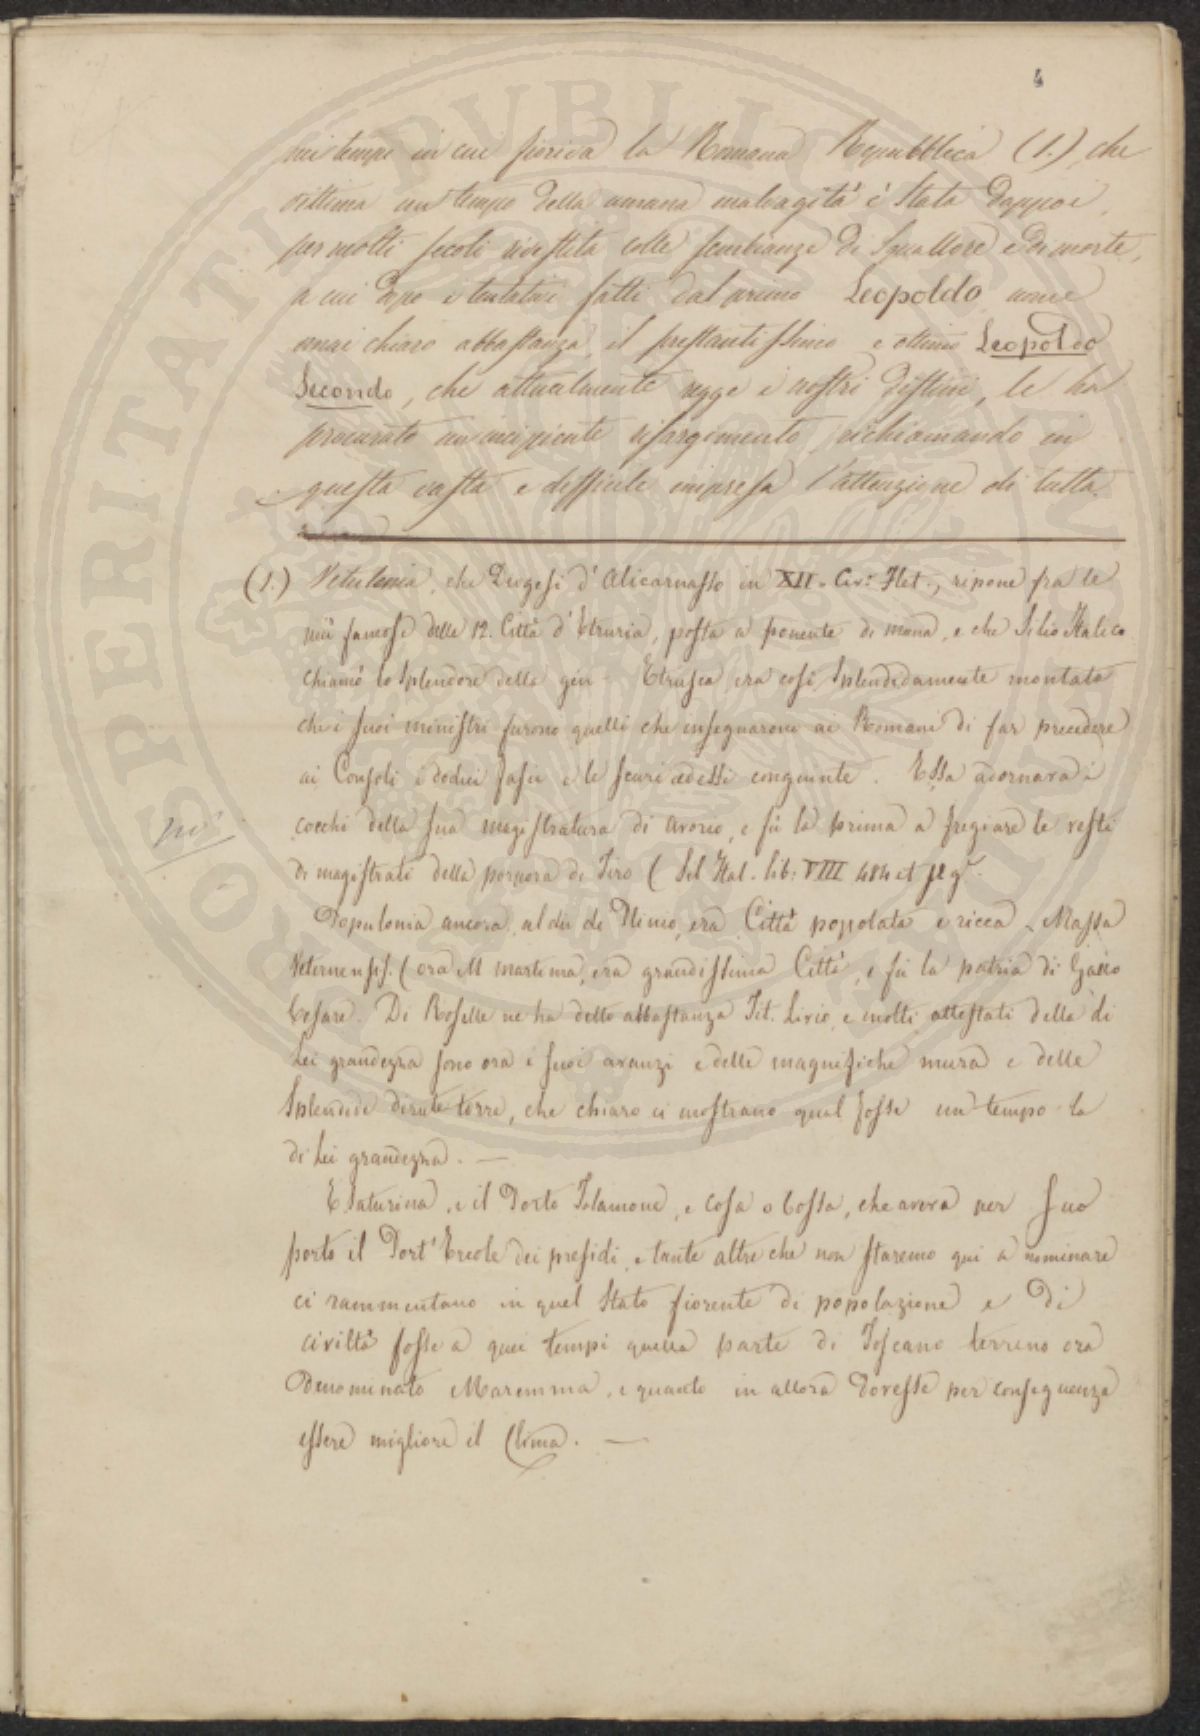 4
nei tempi in cui fioriva la Romana Repubblica (1.), che
vittima un tempo della umana malvagità è stata dappoi
per molti secoli rivestita colle sembianze di squallore e di morte,
a cui dopo i tentativi fatti dal primo Leopoldo nome
mai chiaro abbastanza, il prestantissimo e ottimo Leopoldo
Secondo, che attualmente regge i nostri destini, le ha
procurato un incipiente risorgimento, richiamando in
questa vasta e difficile impresa l'attenzione di tutta
(1.) Vetulonia, che Dirigesi d'Alicarnasso in XII. Civ: Het., ripone fra le
più famose delle 12. Città d'Etruria, posta a ponente di mana, e che Silio Italico
chiamò lo splendore della gen - Etrusca, era così splendidamente montata
che i suoi ministri furono quelli che insegnarono ai Romani di far precedere
ai Consoli i dodici fasci e le scuri ad essi congiunte. Essa adornava i
cocchi della sua magistratura di avorio, e fù la prima a fregiare le vesti
di magistrati della porpora di Tiro ( Sil Ital. lib: VIII 484 et
Populonia ancora, al dir di Plinio, era Città popolata e ricca. Massa
Veternensis. ( ora M marittima, era grandissima Città, e fù la patria di Gallo
Cesare. Di Roselle ne ha detto abbastanza Tit. Livio, e molti attestati della di
Lei grandezza sono ora i suoi avanzi e delle magnifiche mura e delle
Splendide dirute torri, che chiaro ci mostrano qual fosse un tempo la
di Lei grandezza. —
E Saturnia, e il Porto Talamone, e Cosa o Cossa, che aveva per suo
porto il Port'Ercole dei presidi, e tante altre che non staremo qui a nominare
ci rammentano in quel stato fiorente di popolazione e di
civiltà fosse a quei tempi quella parte di Toscano terreno ora
denominato Maremma, e quanto in allora dovesse per conseguenza
essere migliore il Clima. —
PROSPERITATI PUBLICAE